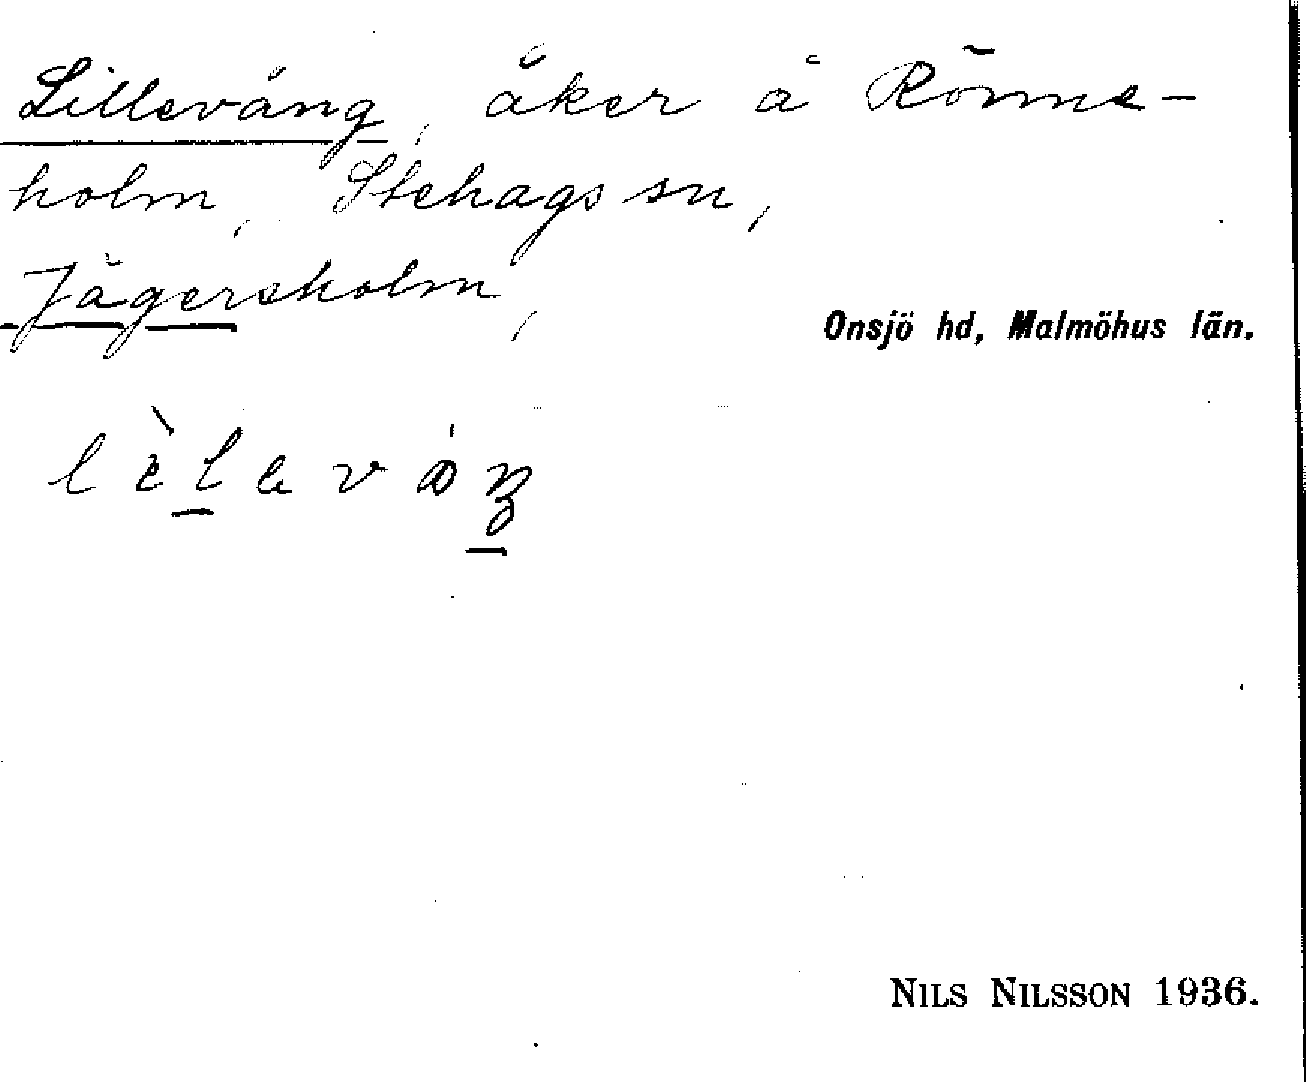 Lillevång, åker å Rönne-
holm, Stehags sn,
Jägersholm,
Onsjö hd, Malmöhus län.
NILS NILSSON 1936.